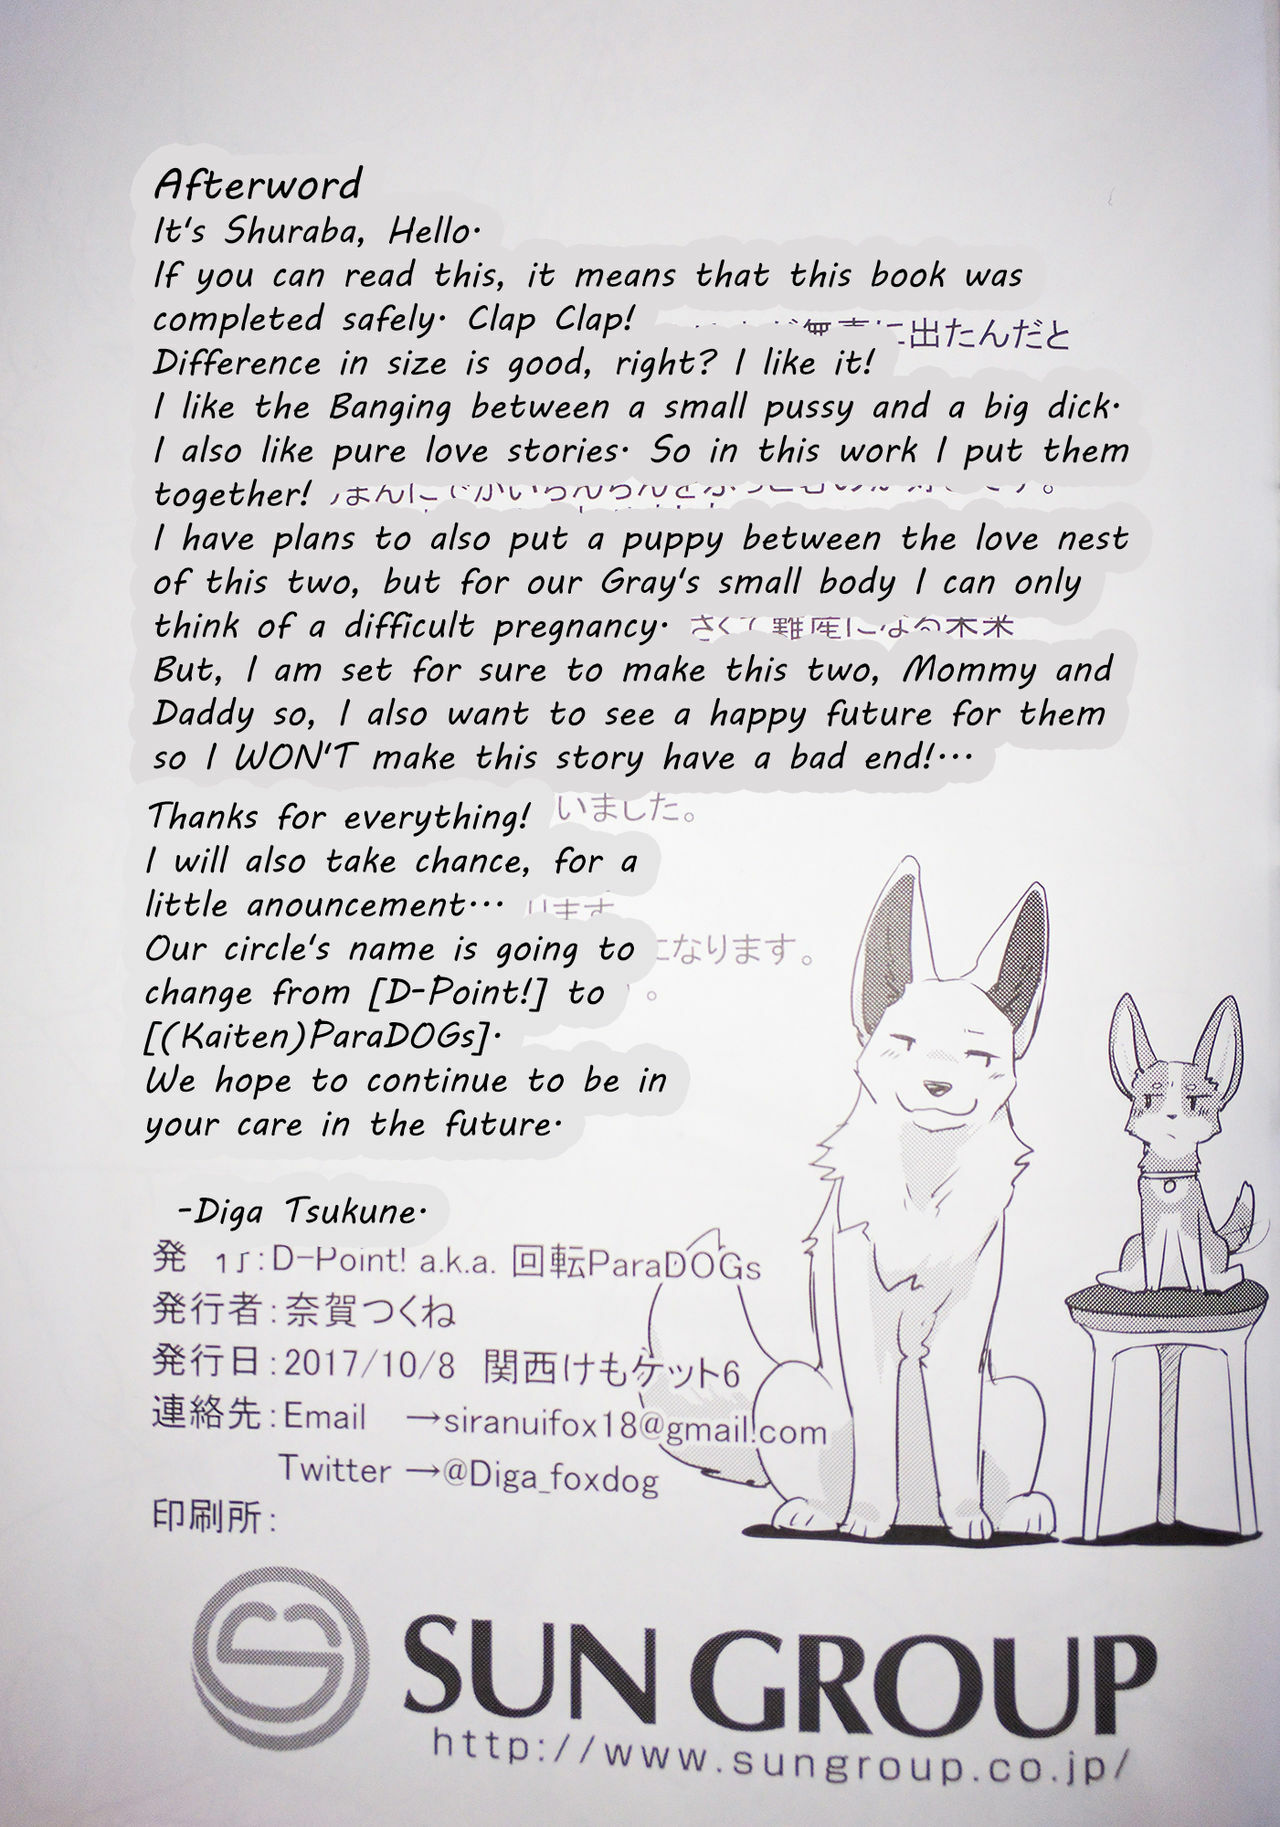 Afterword
It's Shuraba, Hello.
If you can read this, it means that this book was
completed safely. Clap Clap!
に出たんだと
Difference in size is good, right? I like it!
I like the Banging between a small pussy and a big dick.
I also like pure love stories. So in this work I put them
together!
I have plans to also put a puppy between the love nest
of this two, but for our Gray's small body I can only
think of a difficult pregnancy.
But, I am set for sure to make this two, Mommy and
Daddy so, I also want to see a happy future for them
so I WON'T make this story have a bad end!...
Thanks for everything!
いました。
I will also take chance, for a
little anouncement...
ります
Our circle's name is going to
になります。
change from [D-Point!] to
[(Kaiten)ParaDOGs].
We hope to continue to be in
your care in the future.
-Diga Tsukune.
発 行:D-Point! a.k.a. 回転ParaDOGs
発行者:奈賀つくね
発行日:2017/10/8 関西けもケット6
連絡先:Email →siranuifox18@gmail.com
Twitter →@Diga_foxdog
印刷所:
SUN GROUP
http://www.sungroup.co.jp/